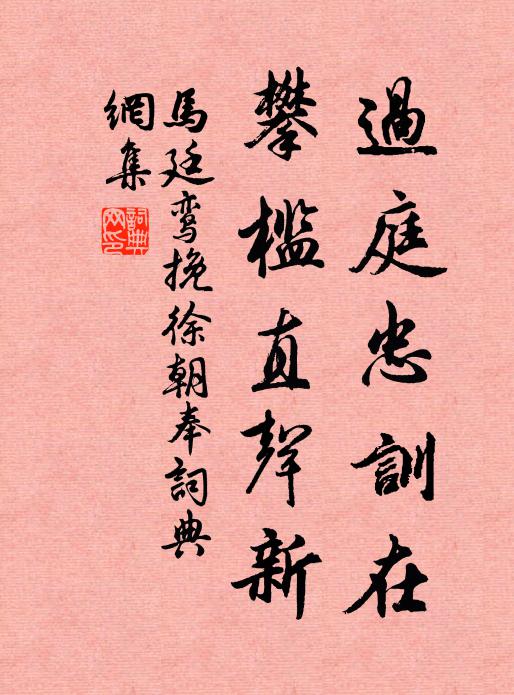 過庭忠訓在
攀檻直聲新
馬廷鸾挽徐朝奉詞典
網集
詞典網印